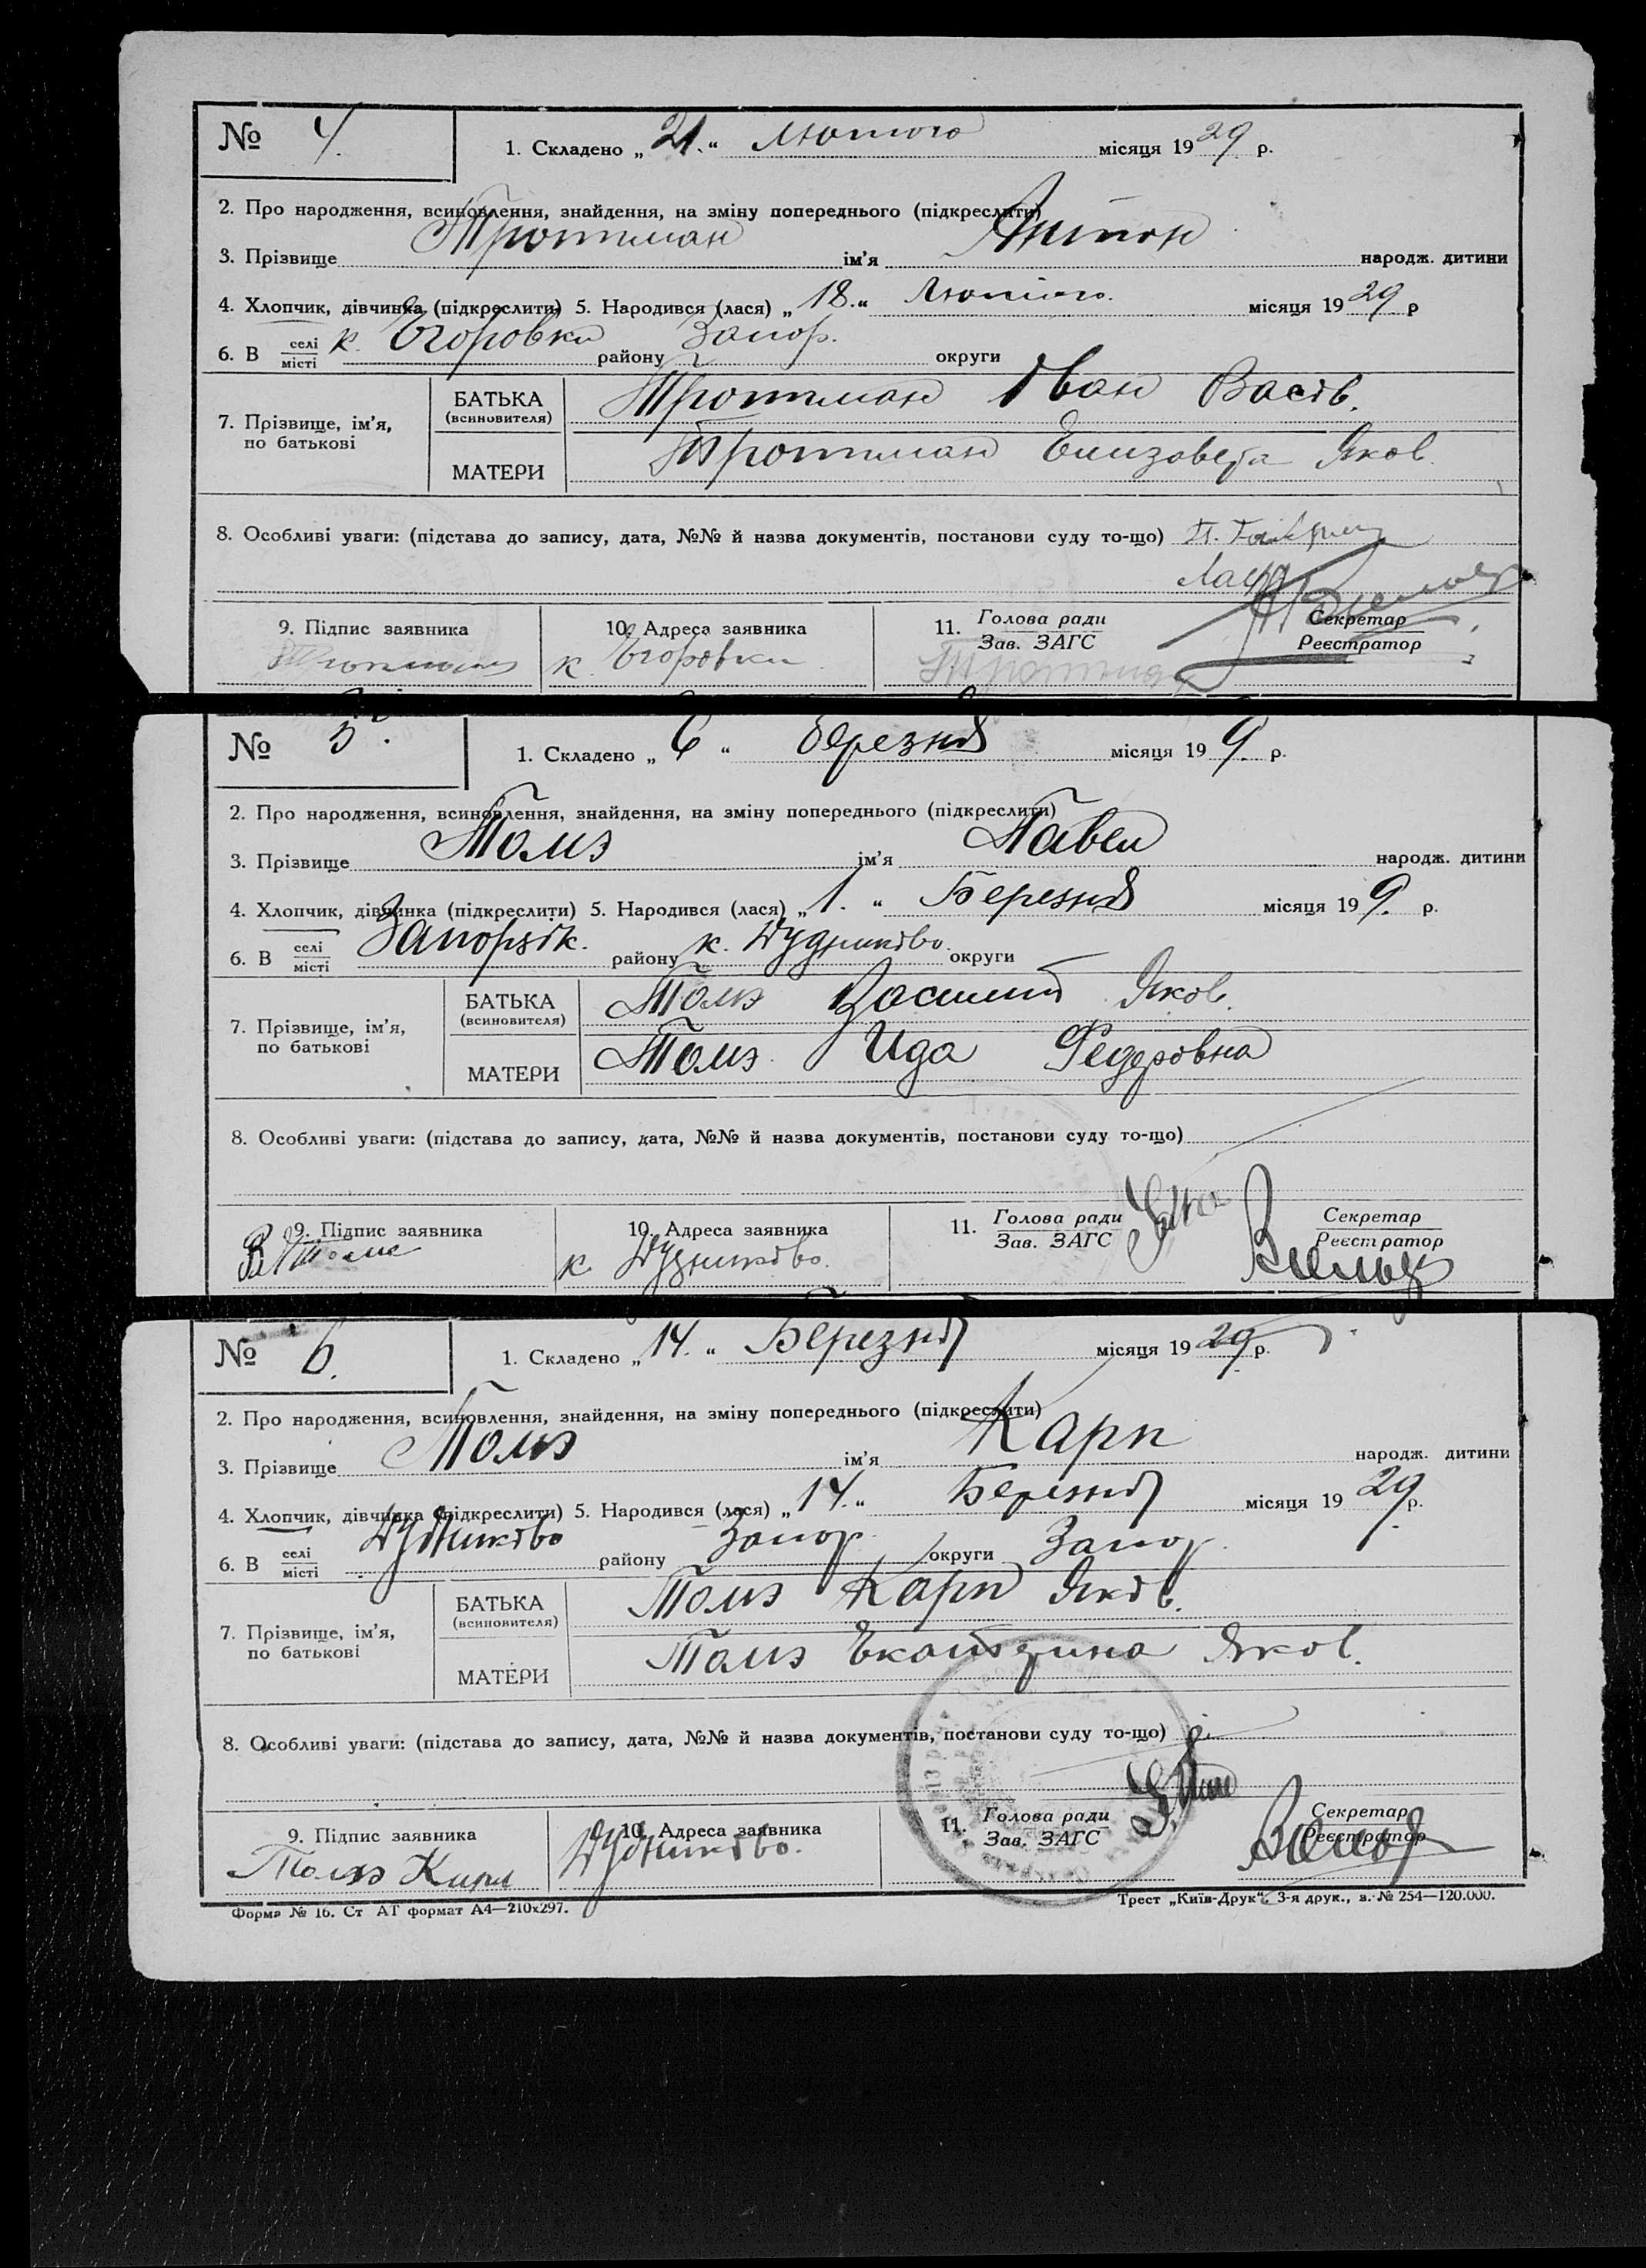 № 4. 1. Складено „21.“ Лютого місяця 1929 р.
2. Про народження, всиновлення, знайдення, на зміну попереднього (підкреслити)
3. Прізвище Тротман ім’я Антон народж. дитини
4. Хлопчик, дівчинка (підкреслити) 5. Народився (лася) „18.“ Лютого. місяця 1929 р
6. В селі місті к. Егоровки району Запор. округи
7. Прізвище, ім’я, по батькові
БАТЬКА (всиновителя) Тротман Іван Васів.
МАТЕРИ Тротман Елизовета Яков.
8. Особливі уваги: (підстава до запису, дата, №№ й назва документів, постанови суду то-що)
9. Підпис заявника 10. Адреса заявника 11. Голова ради Зав. ЗАГС Секретар Реєстратор
к. Егоровки
№ 5. 1. Складено „6“ березня місяця 199. р.
2. Про народження, всиновлення, знайдення, на зміну попереднього (підкреслити)
3. Прізвище Толмэ ім’я Павел народж. дитини
4. Хлопчик, дівчинка (підкреслити) 5. Народився (лася) „1.“ Березня місяця 199. р.
6. В селі місті Запорзік. району к. Дудниково. округи
7. Прізвище, ім’я, по батькові
БАТЬКА (всиновителя) Василий Яков.
МАТЕРИ Ида Федоровна
8. Особливі уваги: (підстава до запису, дата, №№ й назва документів, постанови суду то-що)
9. Підпис заявника 10. Адреса заявника 11. Голова ради Зав. ЗАГС Секретар Реєстратор
к Дудниково.
№ 6. 1. Складено „14.“ Березня місяця 1929 р.
2. Про народження, всиновлення, знайдення, на зміну попереднього (підкреслити)
3. Прізвище ім’я Карл народж. дитини
4. Хлопчик, дівчинка (підкреслити) 5. Народився (лася) „14.“ Березня місяця 1929 р.
6. В селі місті Дудниково району Запор. округи Запор.
7. Прізвище, ім’я, по батькові
БАТЬКА (всиновителя) Карл Яків.
МАТЕРИ Екатерина Яков.
8. Особливі уваги: (підстава до запису, дата, №№ й назва документів, постанови суду то-що)
9. Підпис заявника 10. Адреса заявника 11. Голова ради Зав. ЗАГС Секретар Реєстратор
Дудниково.
Форма № 16. Ст АТ формат А4—210х297. Трест „Київ-Друк“. 3-я друк., з. № 254—120.000.